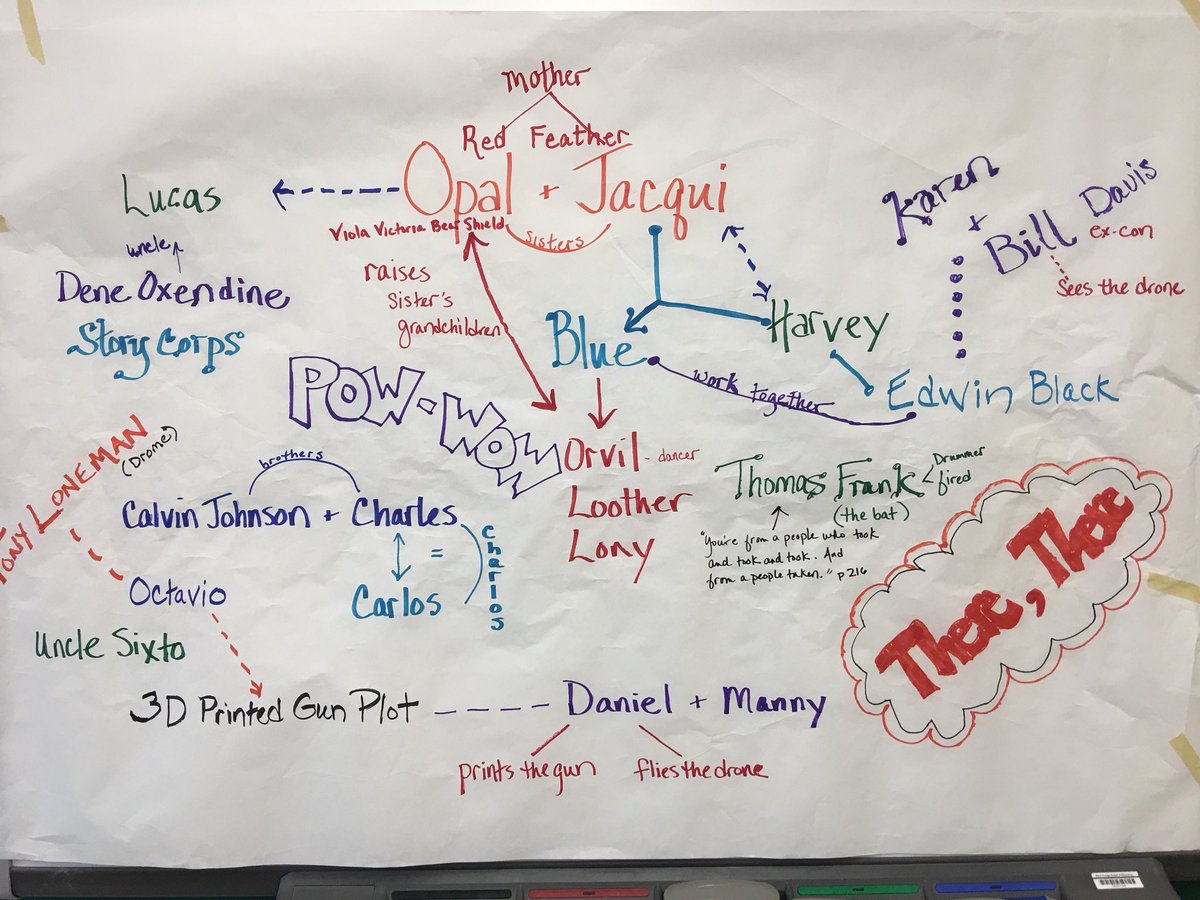 mother
Red Feather
Opal + Jacqui
Viola Victoria Bear Shield
sisters
Lucas
uncle
Dene Oxendine
Story Corps
raises
sister's
grandchildren
Karen
+
Bill Davis
ex-con
Sees the drone
Blue
Harvey
work together
Edwin Black
POW-WOW
Orvil - dancer
Loother
Lony
Thomas Frank
Drummer
fired
(the bat)
"You're from a people who took
and took and took. And
from a people taken." p 216
There, There
TONY LONEMAN
(Drome)
brothers
Calvin Johnson + Charles
=
Charlos
Carlos
Octavio
Uncle Sixto
3D Printed Gun Plot
Daniel + Manny
prints the gun
flies the drone